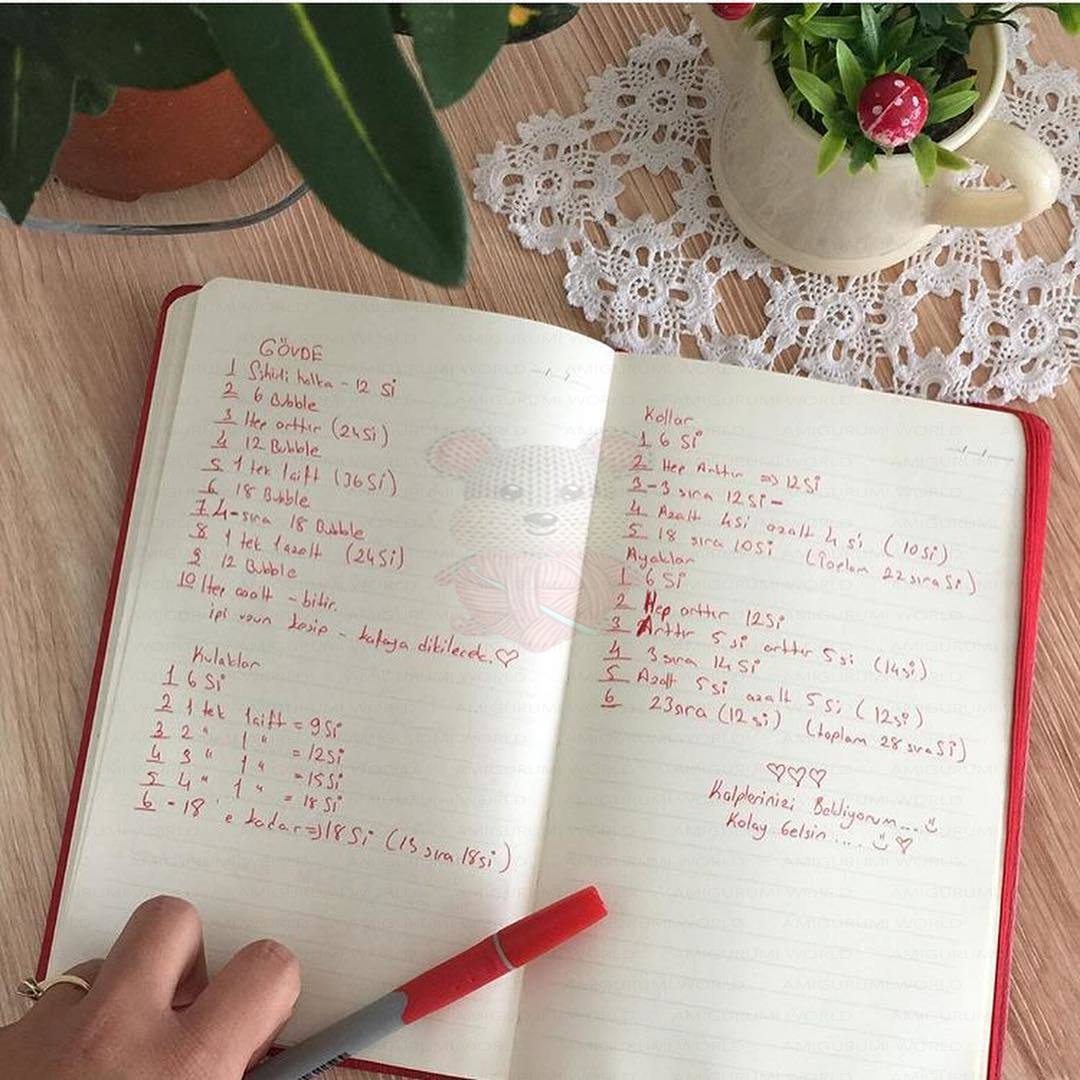 GÖVDE
1 Sihirli halka - 12 Si
2 6 Bubble
3 Hep arttır (24Si)
4 12 Bubble
5 1 tek 1çift (36Si)
6 18 Bubble
7 4-sıra 18 Bubble
8 1 tek 1azalt (24Si)
9 12 Bubble
10 Hep azalt - bitir.
ipi uzun kesip - kafaya dikilecek. ♡
Kulaklar
1 6 Si
2 1 tek 1çift = 9Si
3 2 " 1 " = 12Si
4 3 " 1 " = 15Si
5 4 " 1 " = 18Si
6 - 18 'e kadar => 18Si (13 sıra 18Si)
Kollar
1 6 Si
2 Hep Arttır => 12Si
3 - 3 sıra 12Si -
4 Azalt 4Si azalt 4Si (10Si)
5 18 sıra 10Si (Toplam 22sıra Si)
Ayaklar
1 6 Si
2 Hep arttır 12Si
3 Arttır 5 si arttır 5 si (14si)
4 3sıra 14Si
5 Azalt 5si azalt 5 Si (12si)
6 23sıra (12si) (toplam 28sıra Si)
♡♡♡
Kalplerinizi Bekliyorum...
Kolay Gelsin .... ♡
AMIGURUMI WORLD